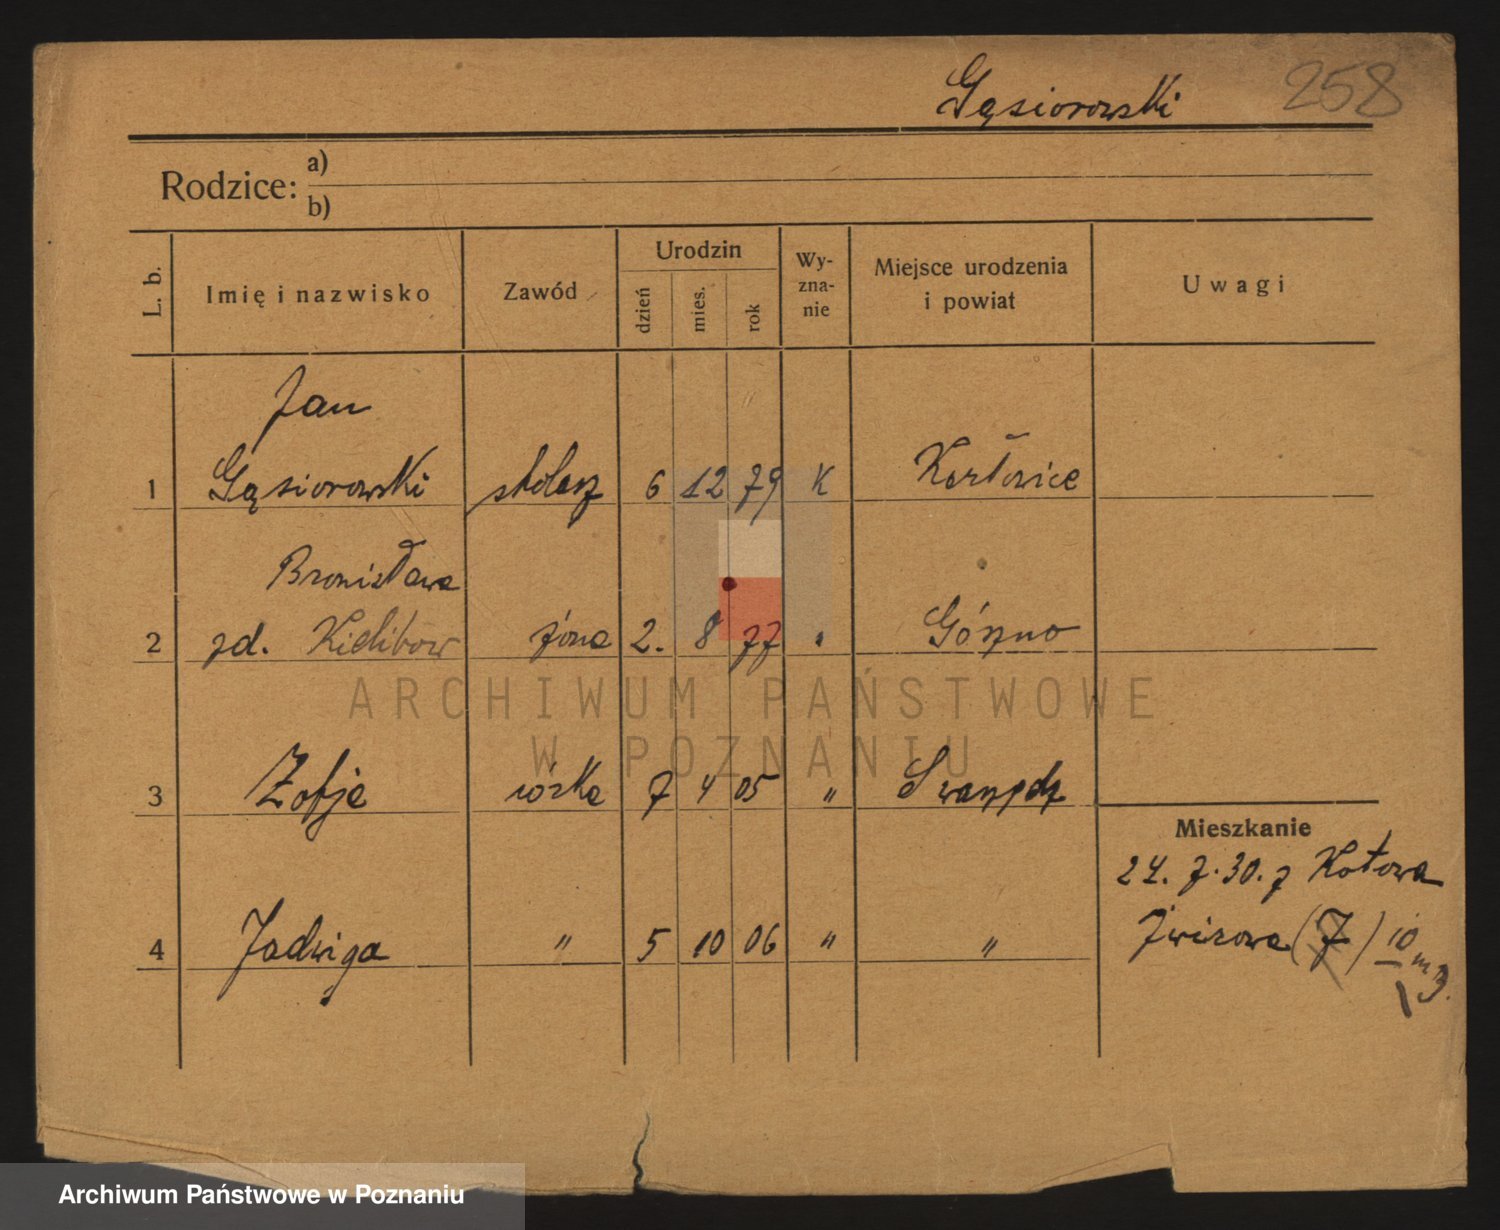 Gąsiorowski 258
Rodzice: a)
b)
L. b. Imię i nazwisko Zawód Urodzin dzień mies. rok Wy-zna-nie Miejsce urodzenia i powiat Uwagi
Jan
1 Gąsiorowski stolarz 6 12 79 K Karłowice
Bronisława
2 zd. żona 2. 8 77 " Górzno
3 Zofja córka 7 4 05 "
4 Jadwiga " 5 10 06 " "
Mieszkanie
24. 7. 30. z Kotowa
Żwirowa (7) 10 m 3.
ARCHIWUM PAŃSTWOWE
W POZNANIU
Archiwum Państwowe w Poznaniu